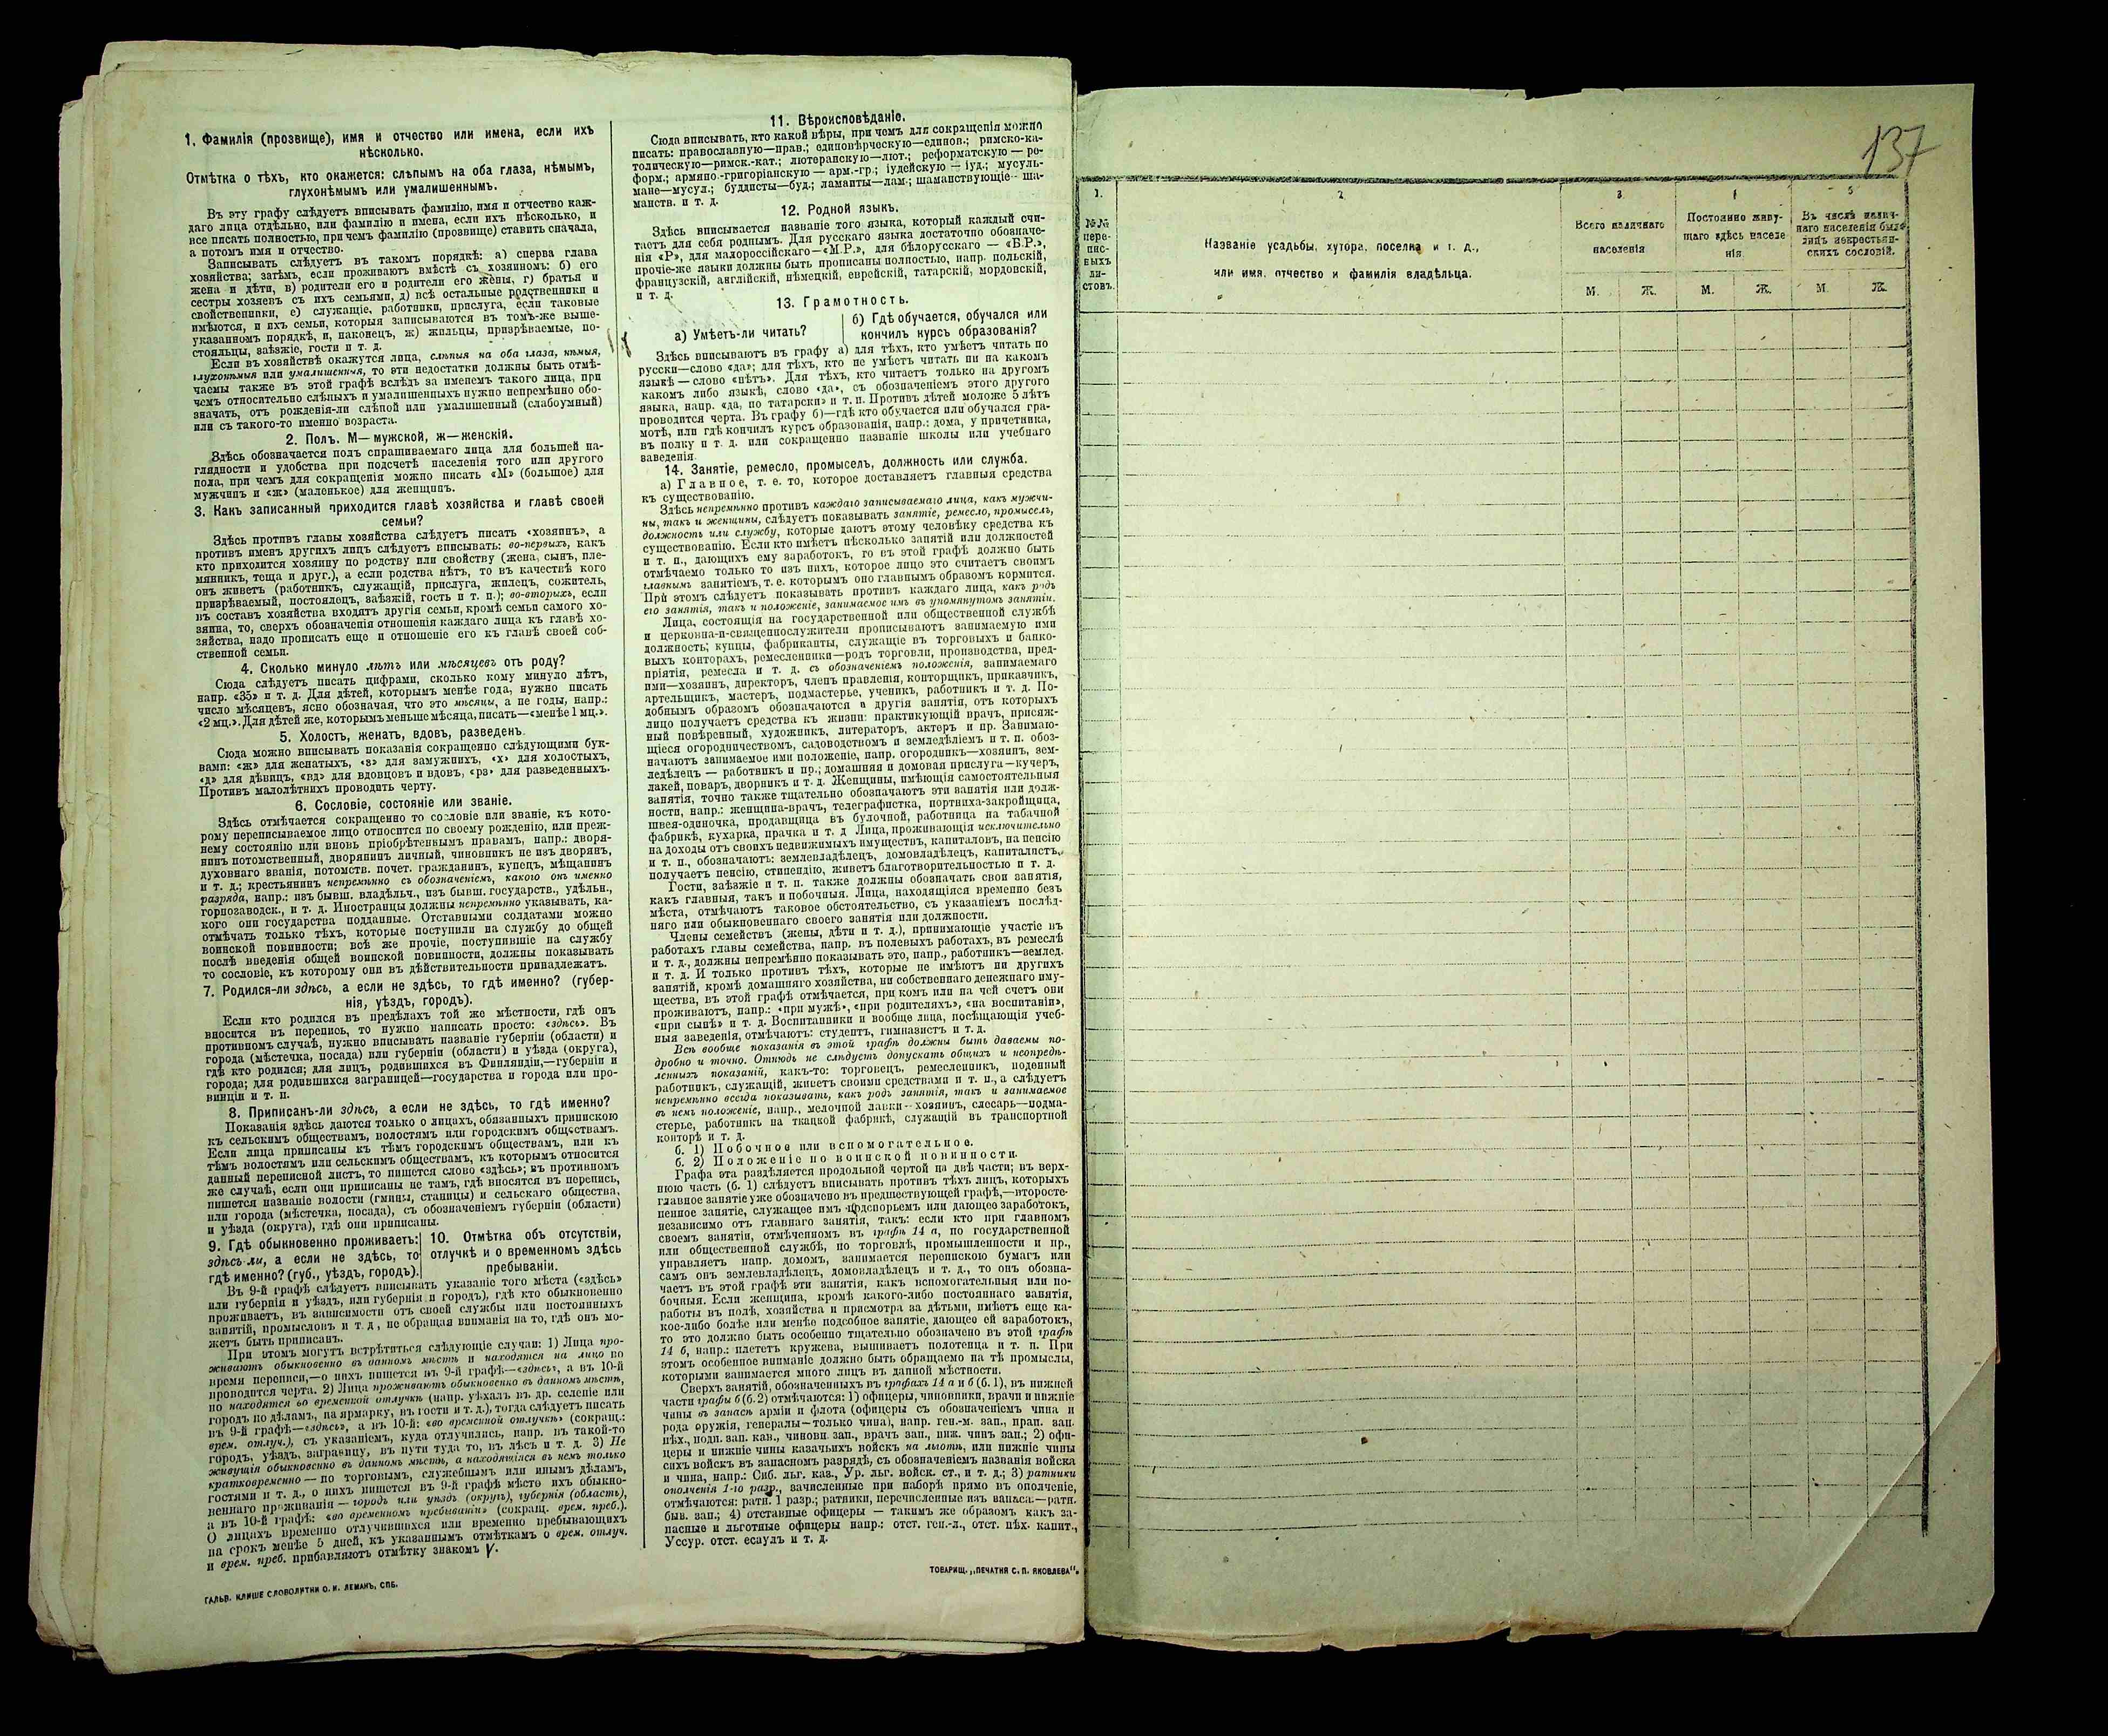 1. Фамилія (прозвище), имя и отчество или имена, если ихъ
нѣсколько.
Отмѣтка о тѣхъ, кто окажется: слѣпымъ на оба глаза, нѣмымъ,
глухонѣмымъ или умалишеннымъ.
Въ эту графу слѣдуетъ вписывать фамилію, имя и отчество каж-
даго лица отдѣльно, или фамилію и имена, если ихъ нѣсколько, и
все писать полностью, при чемъ фамилію (прозвище) ставить сначала,
а потомъ имя и отчество.
Записывать слѣдуетъ въ такомъ порядкѣ: а) сперва глава
хозяйства; затѣмъ, если проживаютъ вмѣстѣ съ хозяиномъ: б) его
жена и дѣти, в) родители его и родители его жены, г) братья и
сестры хозяевъ съ ихъ семьями, д) всѣ остальные родственники и
свойственники, е) служащіе, работники, прислуга, если таковые
имѣются, и ихъ семьи, которыя записываются въ томъ-же выше-
указанномъ порядкѣ, и, наконецъ, ж) жильцы, призрѣваемые, по-
стояльцы, заѣзжіе, гости и т. д.
Если въ хозяйствѣ окажутся лица, слѣпыя на оба глаза, нѣмыя,
глухонѣмыя или умалишенныя, то эти недостатки должны быть отмѣ-
чаемы также въ этой графѣ вслѣдъ за именемъ такого лица, при
чемъ относительно слѣпыхъ и умалишенныхъ нужно непремѣнно обо-
значать, отъ рожденія-ли слѣпой или умалишенный (слабоумный)
или съ такого-то именно возраста.
2. Полъ. М—мужской, ж—женскій.
Здѣсь обозначается полъ спрашиваемаго лица для большей на-
глядности и удобства при подсчетѣ населенія того или другого
пола, при чемъ для сокращенія можно писать «М» (большое) для
мужчинъ и «ж» (маленькое) для женщинъ.
3. Какъ записанный приходится главѣ хозяйства и главѣ своей
семьи?
Здѣсь противъ главы хозяйства слѣдуетъ писать «хозяинъ», а
противъ именъ другихъ лицъ слѣдуетъ вписывать: во-первыхъ, какъ
кто приходится хозяину по родству или свойству (жена, сынъ, пле-
мянникъ, теща и друг.), а если родства нѣтъ, то въ качествѣ кого
онъ живетъ (работникъ, служащій, прислуга, жилецъ, сожитель,
призрѣваемый, постоялецъ, заѣзжій, гость и т. п.); во-вторыхъ, если
въ составъ хозяйства входятъ другія семьи, кромѣ семьи самого хо-
зяина, то, сверхъ обозначенія отношенія каждаго лица къ главѣ хо-
зяйства, надо прописать еще и отношеніе его къ главѣ своей соб-
ственной семьи.
4. Сколько минуло лѣтъ или мѣсяцевъ отъ роду?
Сюда слѣдуетъ писать цифрами, сколько кому минуло лѣтъ,
напр. «35» и т. д. Для дѣтей, которымъ менѣе года, нужно писать
число мѣсяцевъ, ясно обозначая, что это мѣсяцы, а не годы, напр.:
«2 мц.». Для дѣтей же, которымъ меньше мѣсяца, писать—«менѣе 1 мц.».
5. Холостъ, женатъ, вдовъ, разведенъ.
Сюда можно вписывать показанія сокращенно слѣдующими бук-
вами: «ж» для женатыхъ, «з» для замужнихъ, «х» для холостыхъ,
«д» для дѣвицъ, «вд» для вдовцовъ и вдовъ, «рз» для разведенныхъ.
Противъ малолѣтнихъ проводить черту.
6. Сословіе, состояніе или званіе.
Здѣсь отмѣчается сокращенно то сословіе или званіе, къ кото-
рому переписываемое лицо относится по своему рожденію, или преж-
нему состоянію или вновь пріобрѣтеннымъ правамъ, напр.: дворя-
нинъ потомственный, дворянинъ личный, чиновникъ не изъ дворянъ,
духовнаго званія, потомств. почет. гражданинъ, купецъ, мѣщанинъ
и т. д.; крестьянинъ непремѣнно съ обозначеніемъ, какого онъ именно
разряда, напр.: изъ бывш. владѣльч., изъ бывш. государств., удѣльн.,
горнозаводск., и т. д. Иностранцы должны непремѣнно указывать, ка-
кого они государства подданные. Отставными солдатами можно
отмѣчать только тѣхъ, которые поступили на службу до общей
воинской повинности; всѣ же прочіе, поступившіе на службу
послѣ введенія общей воинской повинности, должны показывать
то сословіе, къ которому они въ дѣйствительности принадлежатъ.
7. Родился-ли здѣсь, а если не здѣсь, то гдѣ именно? (губер-
нія, уѣздъ, городъ).
Если кто родился въ предѣлахъ той же мѣстности, гдѣ онъ
вносится въ перепись, то нужно написать просто: «здѣсь». Въ
противномъ случаѣ, нужно вписывать названіе губерніи (области) и
города (мѣстечка, посада) или губерніи (области) и уѣзда (округа),
гдѣ кто родился; для лицъ, родившихся въ Финляндіи,—губерніи и
города; для родившихся заграницей—государства и города или про-
винціи и т. п.
8. Приписанъ-ли здѣсь, а если не здѣсь, то гдѣ именно?
Показанія здѣсь даются только о лицахъ, обязанныхъ припискою
къ сельскимъ обществамъ, волостямъ или городскимъ обществамъ.
Если лица приписаны къ тѣмъ городскимъ обществамъ, или къ
тѣмъ волостямъ или сельскимъ обществамъ, къ которымъ относится
данный переписной листъ, то пишется слово «здѣсь»; въ противномъ
же случаѣ, если они приписаны не тамъ, гдѣ вносятся въ перепись,
пишется названіе волости (гмины, станицы) и сельскаго общества,
или города (мѣстечка, посада), съ обозначеніемъ губерніи (области)
и уѣзда (округа), гдѣ они приписаны.
9. Гдѣ обыкновенно проживаетъ:
здѣсь-ли, а если не здѣсь, то
гдѣ именно? (губ., уѣздъ, городъ).
10. Отмѣтка объ отсутствіи,
отлучкѣ и о временномъ здѣсь
пребываніи.
Въ 9-й графѣ слѣдуетъ вписывать указаніе того мѣста («здѣсь»
или губернія и уѣздъ, или губернія и городъ), гдѣ кто обыкновенно
проживаетъ, въ зависимости отъ своей службы или постоянныхъ
занятій, промысловъ и т. д, не обращая вниманія на то, гдѣ онъ мо-
жетъ быть приписанъ.
При этомъ могутъ встрѣтиться слѣдующіе случаи: 1) Лица про-
живаютъ обыкновенно въ данномъ мѣстѣ и находятся на лицо во
время переписи,—о нихъ пишется въ 9-й графѣ—«здѣсь», а въ 10-й
проводится черта. 2) Лица проживаютъ обыкновенно въ данномъ мѣстѣ,
но находятся во временной отлучкѣ (напр. уѣхалъ въ др. селеніе или
городъ по дѣламъ, на ярмарку, въ гости и т. д.), тогда слѣдуетъ писать
въ 9-й графѣ—«здѣсь», а въ 10-й: «во временной отлучкѣ» (сокращ.:
врем. отлуч.), съ указаніемъ, куда отлучились, напр. въ такой-то
городъ, уѣздъ, заграницу, въ пути туда то, въ лѣсъ и т. д. 3) Не
живущія обыкновенно въ данномъ мѣстѣ, а находящіяся въ немъ только
кратковременно — по торговымъ, служебнымъ или инымъ дѣламъ,
гостями и т. д., о нихъ пишется въ 9-й графѣ мѣсто ихъ обыкно-
веннаго проживанія — городъ или уѣздъ (округъ), губернія (область),
а въ 10-й графѣ: «во временномъ пребываніи» (сокращ. врем. преб.).
О лицахъ временно отлучившихся или временно пребывающихъ
на срокъ менѣе 5 дней, къ указаннымъ отмѣткамъ о врем. отлуч.
и врем. преб. прибавляютъ отмѣтку знакомъ V.
ГАЛЬВ. КЛИШЕ СЛОВОЛИТНИ О. И. ЛЕМАНЪ, СПБ.
11. Вѣроисповѣданіе.
Сюда вписывать, кто какой вѣры, при чемъ для сокращенія можно
писать: православную—прав.; единовѣрческую—единов.; римско-ка-
толическую—римск.-кат.; лютеранскую—лют.; реформатскую — ре-
форм.; армяно.-григоріанскую — арм.-гр.; іудейскую — іуд.; мусуль-
мане—мусул.; буддисты—буд.; ламаиты—лам.; шаманствующіе— ша-
манств. и т. д.
12. Родной языкъ.
Здѣсь вписывается названіе того языка, который каждый счи-
таетъ для себя роднымъ. Для русскаго языка достаточно обозначе-
нія «Р», для малороссійскаго—«М.Р.», для бѣлорусскаго — «Б.Р.»,
прочіе-же языки должны быть прописаны полностью, напр. польскій,
французскій, англійскій, нѣмецкій, еврейскій, татарскій, мордовскій,
и т. д.
13. Грамотность.
а) Умѣетъ-ли читать?
б) Гдѣ обучается, обучался или
кончилъ курсъ образованія?
Здѣсь вписываютъ въ графу а) для тѣхъ, кто умѣетъ читать по
русски—слово «да»; для тѣхъ, кто не умѣетъ читать ни на какомъ
языкѣ — слово «нѣтъ». Для тѣхъ, кто читаетъ только на другомъ
какомъ либо языкѣ, слово «да», съ обозначеніемъ этого другого
языка, напр. «да, по татарски» и т. п. Противъ дѣтей моложе 5 лѣтъ
проводится черта. Въ графу б)—гдѣ кто обучается или обучался гра-
мотѣ, или гдѣ кончилъ курсъ образованія, напр.: дома, у причетника,
въ полку и т. д. или сокращенно названіе школы или учебнаго
заведенія.
14. Занятіе, ремесло, промыселъ, должность или служба.
а) Главное, т. е. то, которое доставляетъ главныя средства
къ существованію.
Здѣсь непремѣнно противъ каждаго записываемаго лица, какъ мужчи-
ны, такъ и женщины, слѣдуетъ показывать занятіе, ремесло, промыселъ,
должность или службу, которые даютъ этому человѣку средства къ
существованію. Если кто имѣетъ нѣсколько занятій или должностей
и т. п., дающихъ ему заработокъ, то въ этой графѣ должно быть
отмѣчаемо только то изъ нихъ, которое лицо это считаетъ своимъ
главнымъ занятіемъ, т. е. которымъ оно главнымъ образомъ кормится.
При этомъ слѣдуетъ показывать противъ каждаго лица, какъ родъ
его занятія, такъ и положеніе, занимаемое имъ въ упомянутомъ занятіи.
Лица, состоящія на государственной или общественной службѣ
и церковно-и-священнослужители прописываютъ занимаемую ими
должность; купцы, фабриканты, служащіе въ торговыхъ и банко-
выхъ конторахъ, ремесленники—родъ торговли, производства, пред-
пріятія, ремесла и т. д. съ обозначеніемъ положенія, занимаемаго
ими—хозяинъ, директоръ, членъ правленія, конторщикъ, приказчикъ,
артельщикъ, мастеръ, подмастерье, ученикъ, работникъ и т. д. По-
добнымъ образомъ обозначаются и другія занятія, отъ которыхъ
лицо получаетъ средства къ жизни: практикующій врачъ, присяж-
ный повѣренный, художникъ, литераторъ, актеръ и пр. Занимаю-
щіеся огородничествомъ, садоводствомъ и земледѣліемъ и т. п. обоз-
начаютъ занимаемое ими положеніе, напр. огородникъ—хозяинъ, зем-
ледѣлецъ — работникъ и пр.; домашняя и домовая прислуга—кучеръ,
лакей, поваръ, дворникъ и т. д. Женщины, имѣющія самостоятельныя
занятія, точно также тщательно обозначаютъ эти занятія или долж-
ности, напр.: женщина-врачъ, телеграфистка, портниха-закройщица,
швея-одиночка, продавщица въ булочной, работница на табачной
фабрикѣ, кухарка, прачка и т. д Лица, проживающія исключительно
на доходы отъ своихъ недвижимыхъ имуществъ, капиталовъ, на пенсію
и т. п., обозначаютъ: землевладѣлецъ, домовладѣлецъ, капиталистъ,
получаетъ пенсію, стипендію, живетъ благотворительностью и т. д.
Гости, заѣзжіе и т. п. также должны обозначать свои занятія,
какъ главныя, такъ и побочныя. Лица, находящіяся временно безъ
мѣста, отмѣчаютъ таковое обстоятельство, съ указаніемъ послѣд-
няго или обыкновеннаго своего занятія или должности.
Члены семействъ (жены, дѣти и т. д.), принимающіе участіе въ
работахъ главы семейства, напр. въ полевыхъ работахъ, въ ремеслѣ
и т. д., должны непремѣнно показывать это, напр., работникъ—землед.
и т. д. И только противъ тѣхъ, которые не имѣютъ ни другихъ
занятій, кромѣ домашняго хозяйства, ни собственнаго денежнаго иму-
щества, въ этой графѣ отмѣчается, при комъ или на чей счетъ они
проживаютъ, напр.: «при мужѣ», «при родителяхъ», «на воспитаніи»,
«при сынѣ» и т. д. Воспитанники и вообще лица, посѣщающія учеб-
ныя заведенія, отмѣчаютъ: студентъ, гимназистъ и т. д.
Всѣ вообще показанія въ этой графѣ должны быть даваемы по-
дробно и точно. Отнюдь не слѣдуетъ допускать общихъ и неопредѣ-
ленныхъ показаній, какъ-то: торговецъ, ремесленникъ, поденный
работникъ, служащій, живетъ своими средствами и т. п., а слѣдуетъ
непремѣнно всегда показывать, какъ родъ занятія, такъ и занимаемое
въ немъ положеніе, напр., мелочной лавки--хозяинъ, слесарь—подма-
стерье, работникъ на ткацкой фабрикѣ, служащій въ транспортной
конторѣ и т. д.
б. 1) Побочное или вспомогательное.
б. 2) Положеніе по воинской повинности.
Графа эта раздѣляется продольной чертой на двѣ части; въ верх-
нюю часть (б. 1) слѣдуетъ вписывать противъ тѣхъ лицъ, которыхъ
главное занятіе уже обозначено въ предшествующей графѣ,—второсте-
пенное занятіе, служащее имъ подспорьемъ или дающее заработокъ,
независимо отъ главнаго занятія, такъ: если кто при главномъ
своемъ занятіи, отмѣченномъ въ графѣ 14 а, по государственной
или общественной службѣ, по торговлѣ, промышленности и пр.,
управляетъ напр. домомъ, занимается перепискою бумагъ или
самъ онъ землевладѣлецъ, домовладѣлецъ и т. д., то онъ обозна-
чаетъ въ этой графѣ эти занятія, какъ вспомогательныя или по-
бочныя. Если женщина, кромѣ какого-либо постояннаго занятія,
работы въ полѣ, хозяйства и присмотра за дѣтьми, имѣетъ еще ка-
кое-либо болѣе или менѣе подсобное занятіе, дающее ей заработокъ,
то это должно быть особенно тщательно обозначено въ этой графѣ
14 б, напр.: плететъ кружева, вышиваетъ полотенца и т. п. При
этомъ особенное вниманіе должно быть обращаемо на тѣ промыслы,
которыми занимается много лицъ въ данной мѣстности.
Сверхъ занятій, обозначенныхъ въ графахъ 14 а и б (б. 1), въ нижней
части графы б (б. 2) отмѣчаются: 1) офицеры, чиновники, врачи и нижніе
чины въ запасѣ арміи и флота (офицеры съ обозначеніемъ чина и
рода оружія, генералы—только чина), напр. ген.-м. зап., прап. зап.
пѣх., подп. зап. кав., чиновн. зап., врачъ зап., ниж. чинъ зап.; 2) офи-
церы и нижніе чины казачьихъ войскъ на льготѣ, или нижніе чины
сихъ войскъ въ запасномъ разрядѣ, съ обозначеніемъ названія войска
и чина, напр.: Сиб. льг. каз., Ур. льг. войск. ст., и т. д.; 3) ратники
ополченія 1-го разр., зачисленные при наборѣ прямо въ ополченіе,
отмѣчаются: ратн. 1 разр.; ратники, перечисленные изъ запаса:—ратн.
быв. зап.; 4) отставные офицеры — такимъ же образомъ какъ за-
пасные и льготные офицеры напр.: отст. ген.-л., отст. пѣх. капит.,
Уссур. отст. есаулъ и т. д.
ТОВАРИЩ. „ПЕЧАТНЯ С. П. ЯКОВЛЕВА“.
137
1. 2 3 4 5
№№
пере-
пис-
ныхъ
ли-
стовъ.
Названіе усадьбы, хутора, поселка и т. д.,
или имя, отчество и фамилія владѣльца.
Всего наличнаго
населенія
Постоянно живу-
щаго здѣсь населе
нія
Въ числѣ налич-
наго населенія было
лицъ некрестьян-
скихъ сословій.
М. Ж. М. Ж. М. Ж.